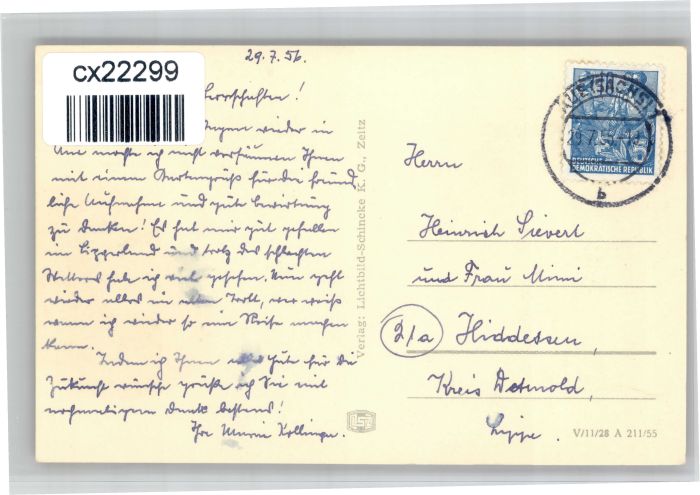 cx22299
29.7.56.
Herrschiften!
wieder in
Aue möchte ich nicht versäumen Ihnen
mit einem Kartengruß für die freund
liche Aufnahme und gute Bewirtung
zu danken! Es hat mir gut gefallen
im Lipperland und trotz des schlechten
Wetters habe ich viel gesehen. Nun geht
wieder alles im alten Trott, wer weiß
wann ich wieder so eine Reise machen
kann.
Indem ich Ihnen alles Gute für die
Zukunft wünsche grüße ich Sie mit
nochmaligem Dank bestens!
Ihre
Verlag: Lichtbild-Schincke K. G., Zeitz
AUE (SACHS)
b
DEUTSCHE
DEMOKRATISCHE REPUBLIK
Herrn
Heinrich Sievert
und Frau Mimi
21a Hiddesen,
Kreis Detmold,
Lippe.
V/11/28 A 211/55